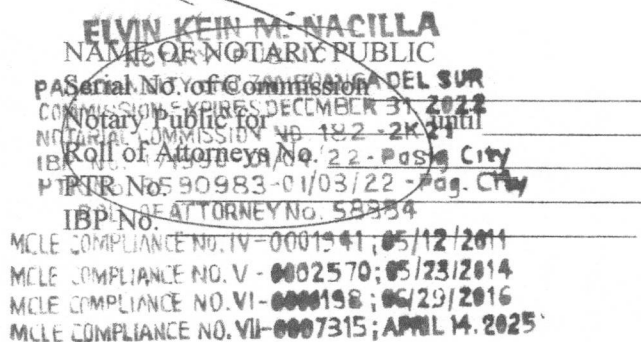 ELVIN KEIN M. NACILLA
NOTARY PUBLIC
NAME OF NOTARY PUBLIC
DEL SUR
Serial No. of Commission
COMMISSION EXPIRES DECEMBER 31 2022
Notary Public for until
NOTARIAL COMMISSION NO 182 -2K21
Roll of Attorneys No.
22 - Pasig City
PTR No.
590983-01/03/22 - Pag. City
IBP No.
OF ATTORNEY No. 58354
MCLE COMPLIANCE NO. IV-0001941; 05/12/2011
MCLE COMPLIANCE NO. V - 0002570; 05/23/2014
MCLE COMPLIANCE NO. VI-0000198; 06/29/2016
MCLE COMPLIANCE NO. VII-0007315; APRIL 14. 2025